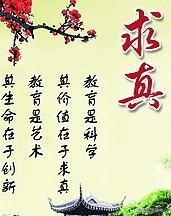 求真
教育是科学
其价值在于求真
教育是艺术
其生命在于创新